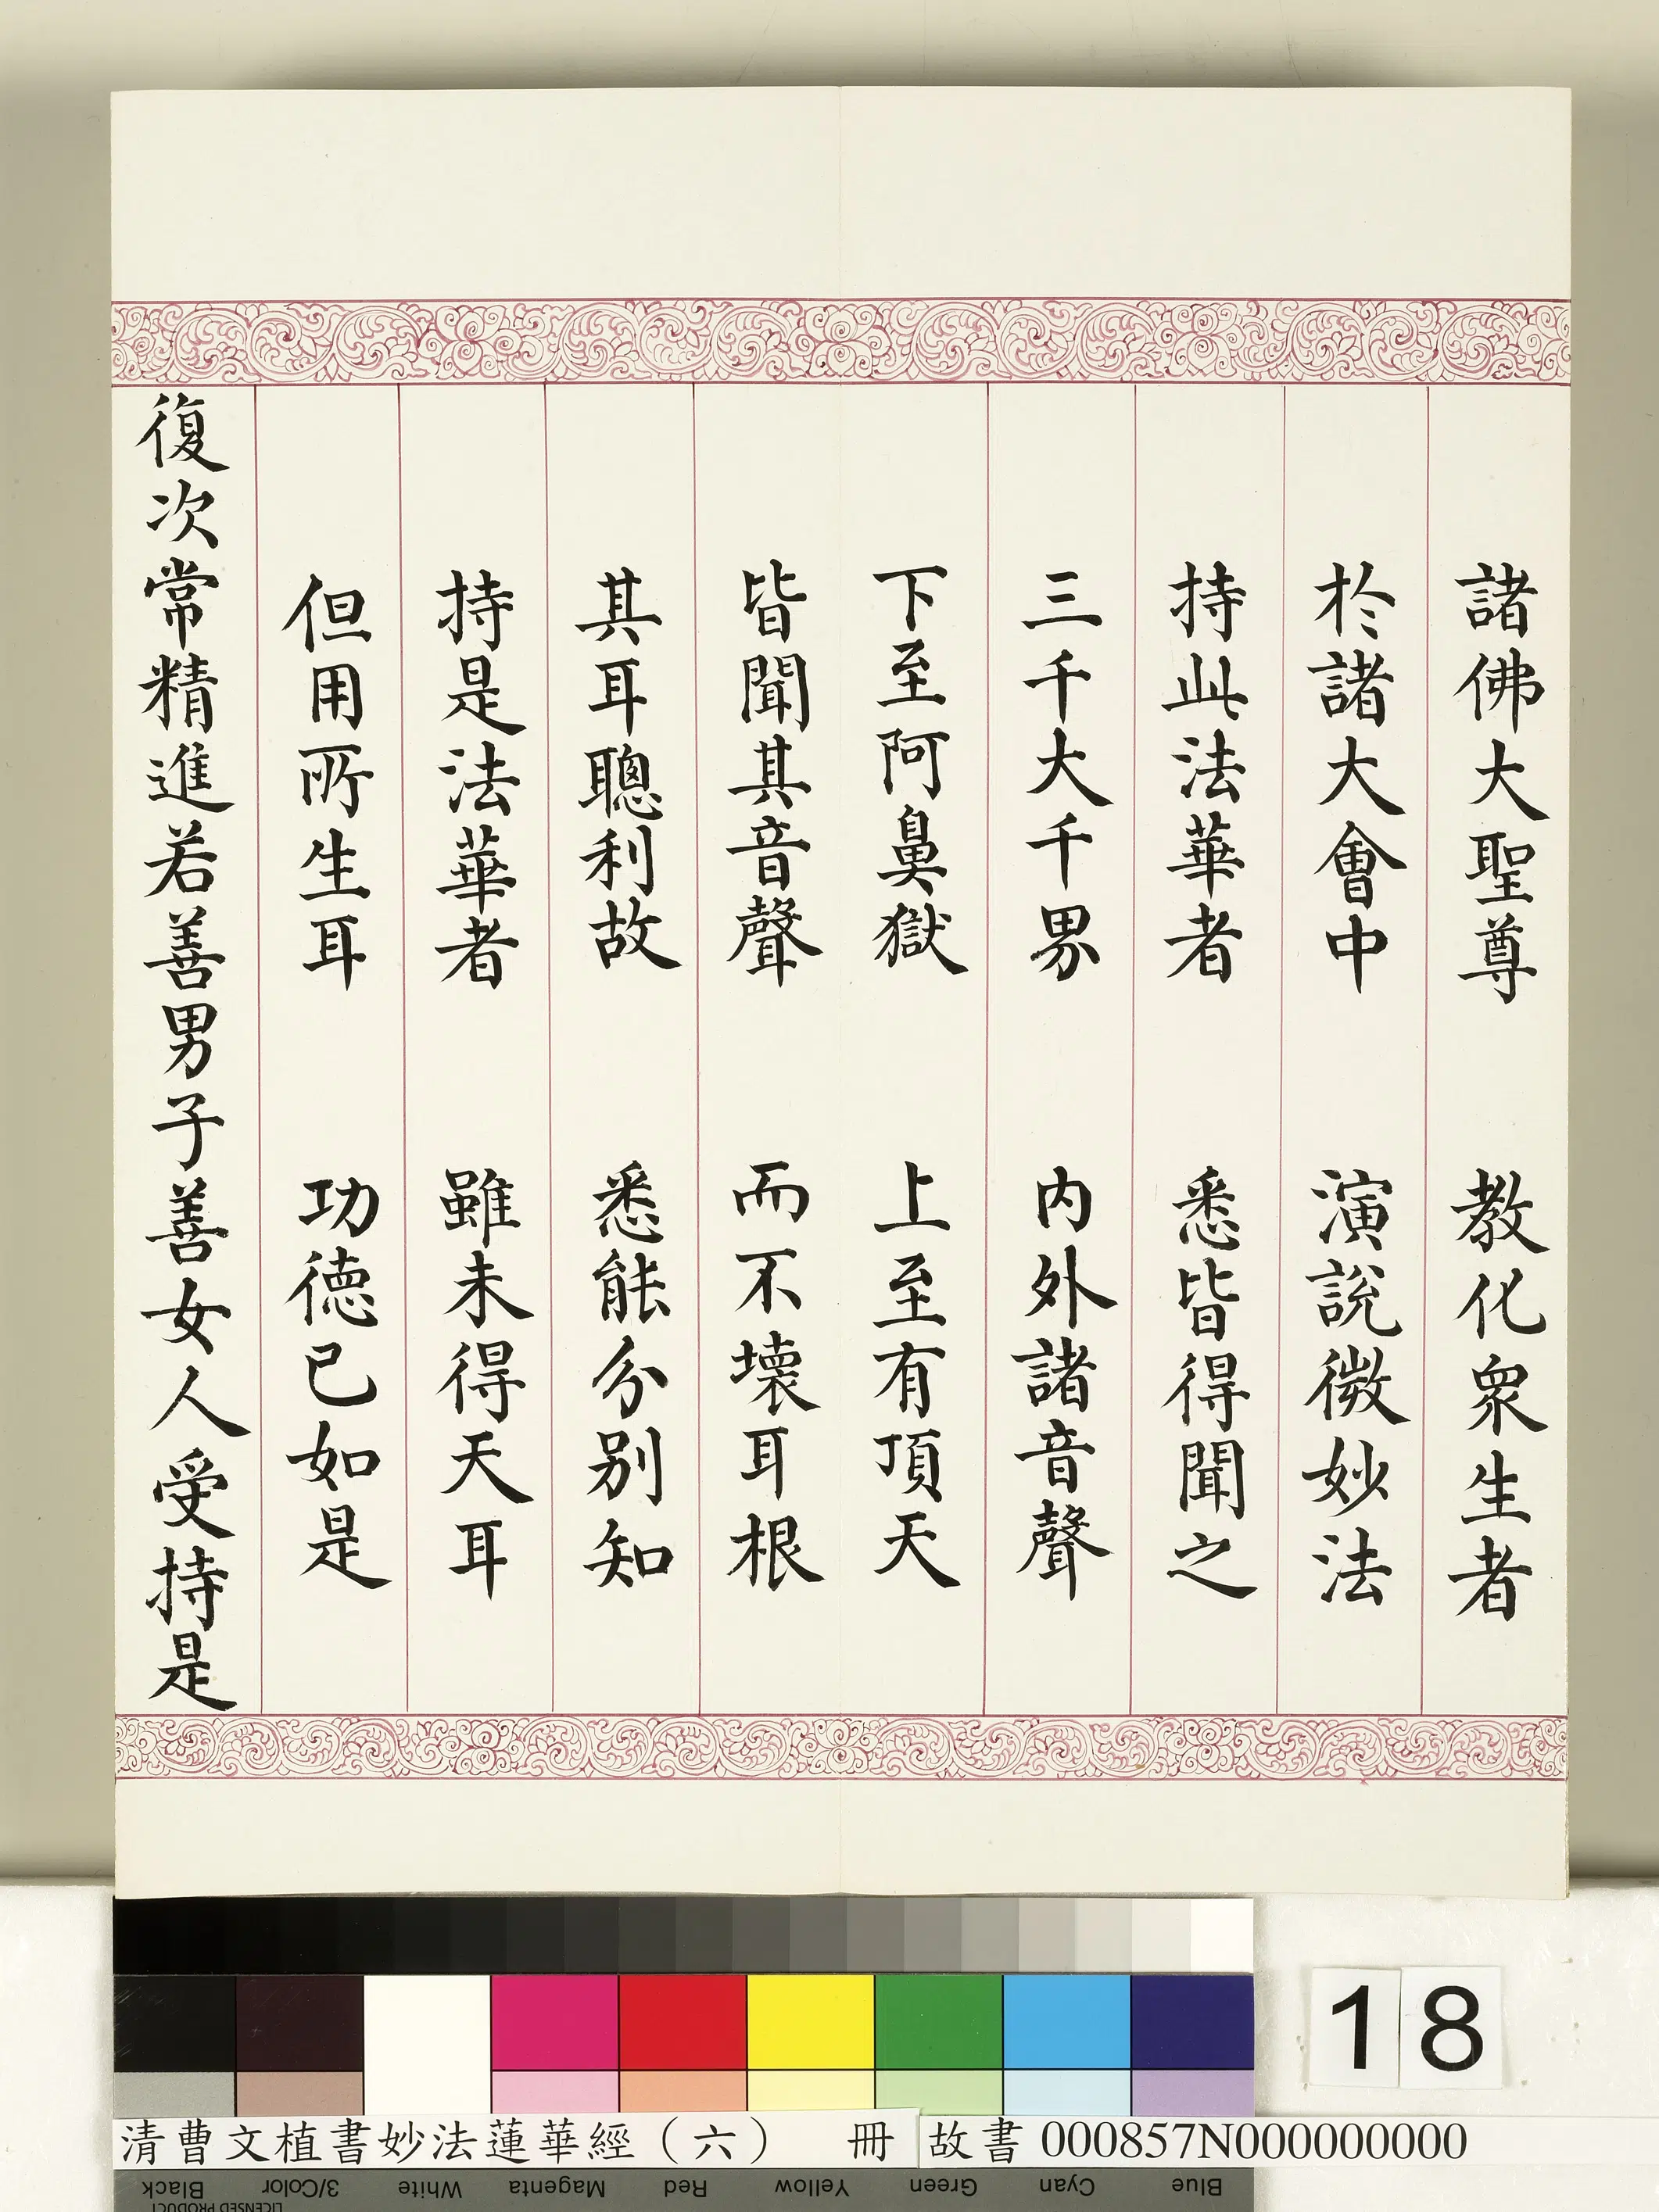 諸佛大聖尊　教化衆生者
於諸大會中　演說微妙法
持此法華者　悉皆得聞之
三千大千界　内外諸音聲
下至阿鼻獄　上至有頂天
皆聞其音聲　而不壞耳根
其耳聰利故　悉能分別知
持是法華者　雖未得天耳
但用所生耳　功德已如是
復次常精進若善男子善女人受持是
18
清曹文植書妙法蓮華經（六）　冊
故書 000857N000000000
Black 3/Color White Magenta Red Yellow Green Cyan Blue
LICENSED PRODUCT